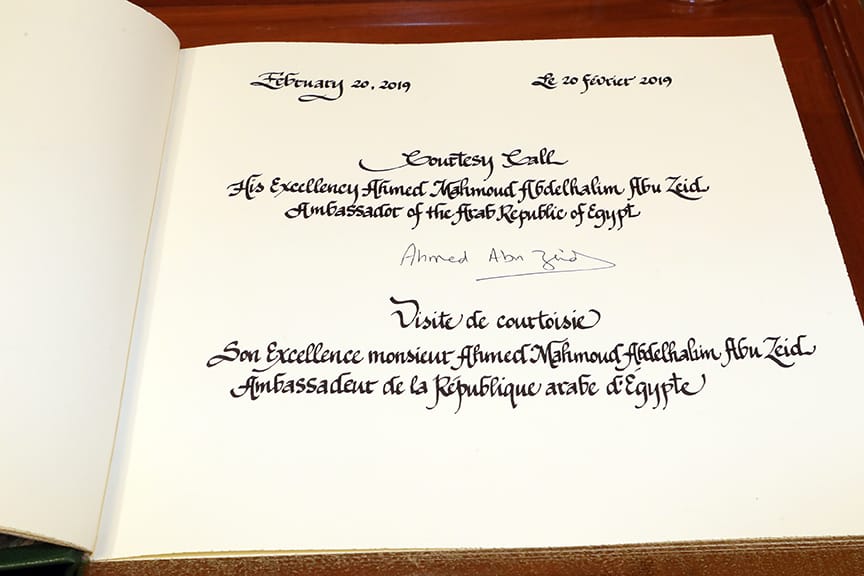 February 20, 2019
Le 20 février 2019
Courtesy Call
His Excellency Ahmed Mahmoud Abdelhalim Abu Zeid
Ambassador of the Arab Republic of Egypt
Ahmed Abu Zeid
Visite de courtoisie
Son Excellence monsieur Ahmed Mahmoud Abdelhalim Abu Zeid
Ambassadeur de la République arabe d'Égypte